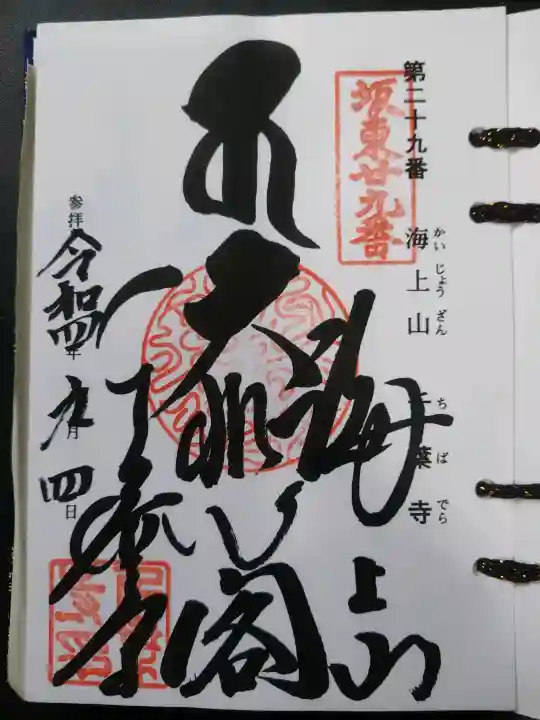 坂東廿九番
第二十九番 海上山 千葉寺
かいじょうざん ちばでら
海上山
大悲閣
千葉寺
参拝 令和四年 九月 四日